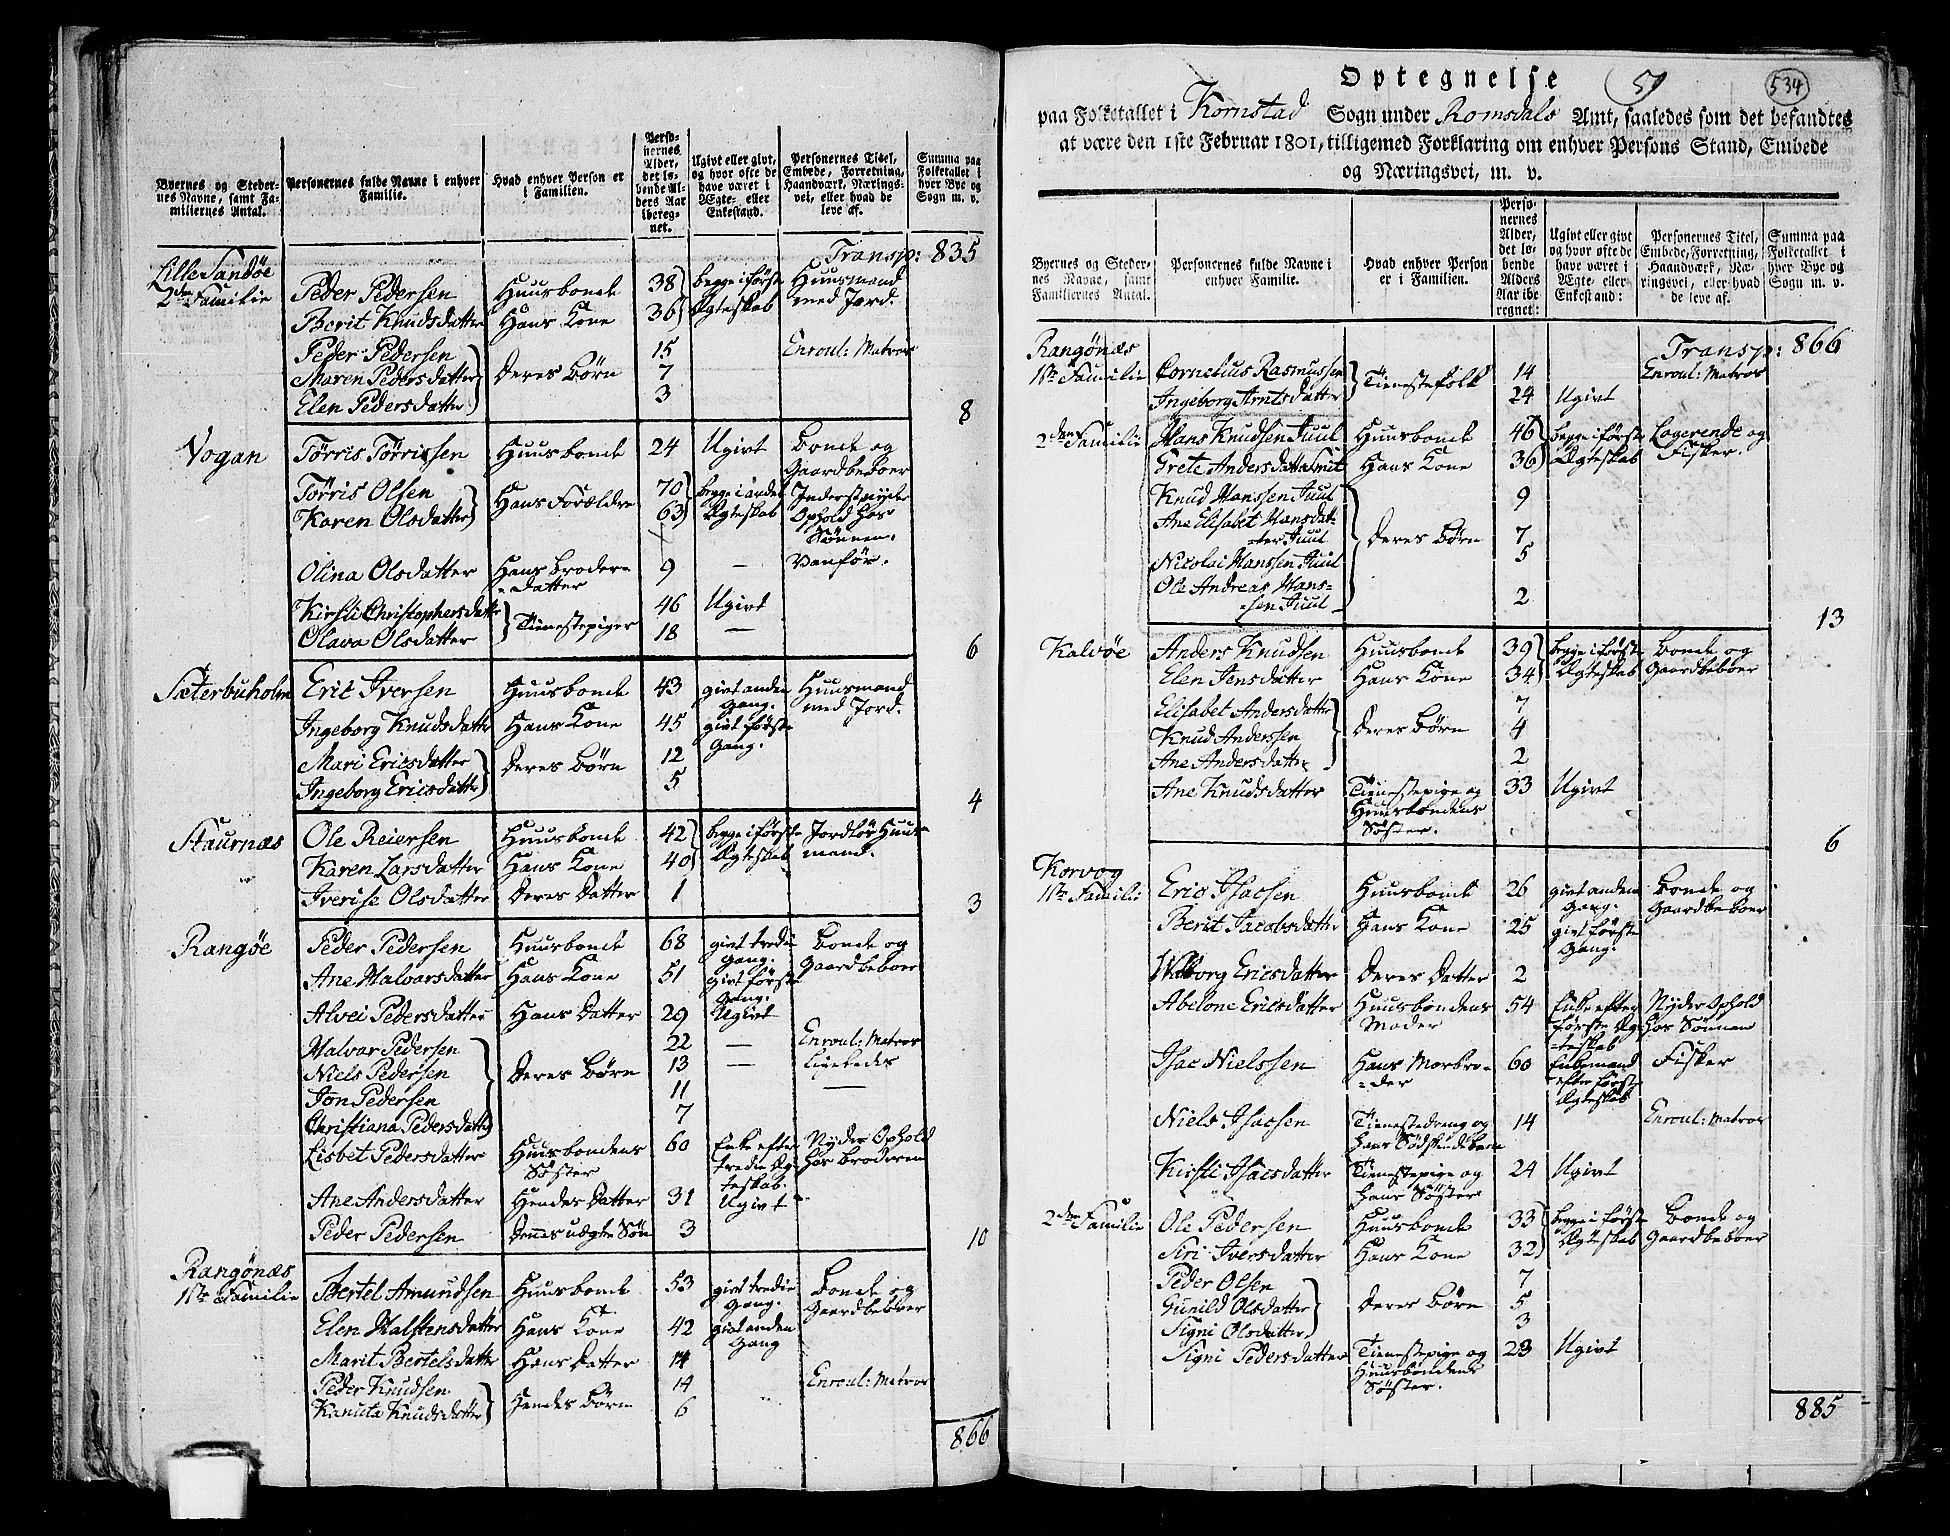 Byernes og Steder-
nes Navne, samt Fa-
miliernes Antal.
Personernes fulde Navne i enhver
Familie.
Hvad enhver Person er
i Familien.
Perso-
nernes
Alder,
det lø-
bende Al-
ders Aar
ibereg-
net.
Ugivt eller givt,
og hvor ofte de
have været i
Ægte- eller
Enkestand.
Personernes Titel,
Embede, Forretning,
Haandværk, Nærings-
vei, eller hvad de
leve af.
Summa paa
Folketallet i
hver Bye og
Sogn m. v.
Transp: 835
Lille Sandøe
2den Familie
Peder Pedersen Huusbonde 38 begge i første Huusmand
Berit Knudsdatter Hans Kone 36 Ægteskab med Jord.
Peder Pedersen 15 Enroul: Matros
Maren Pedersdatter Deres Børn 7
Elen Pedersdatter 3
8
Vogan Tørris Tørrissen Huusbonde 24 Ugivt Bonde og
Gaardbeboer
Tørris Olsen Hans Forældre 70 begge i andet Inderst nyder
Karen Olsdatter 63 Ægteskab Ophold hos
Sønnen.
Olina Olsdatter Hans Broder- 9 — Vanfør.
datter
Kirsti Christophersdatter Tienestepiger 46 Ugivt
Olava Olsdatter 18 —
6
Sæterbuholm Eric Iversen Huusbonde 43 givt anden Huusmand
Gang. med Jord.
Ingeborg Knudsdatter Hans Kone 45 givt første
Gang.
Mari Ericsdatter Deres Børn 12
Ingeborg Ericsdatter 5
4
Staurnæs Ole Reiersen Huusbonde 42 begge i første Jordløs Huus-
Karen Larsdatter Hans Kone 40 Ægteskab mand.
Iverise Olsdatter Deres Datter 1
3
Rangøe Peder Pedersen Huusbonde 68 givt tredie Bonde og
Gang. Gaardbeboer
Ane Halvorsdatter Hans Kone 51 givt første
Gang.
Alvei Pedersdatter Hans Datter 29 Ugivt
Halvor Pedersen 22 — Enroul: Matros
Niels Pedersen Deres Børn 13 — Ligeledes
Jon Pedersen 11 —
Christiana Pedersdatter 7
Lisbet Pedersdatter Huusbondens 60 Enke efter Nyder Ophold
Søster tredie Æg- hos Broderen
teskab.
Ane Andersdatter Hendes Datter 31 Ugivt
Peder Pedersen Dennes uægte Søn 3
10
Rangønæs
1ste Familie Bertel Amundsen Huusbonde 53 givt tredie Bonde og
Gang. Gaardbeboer
Elen Halstensdatter Hans Kone 42 givt anden
Gang
Marit Bertelsdatter Hans Datter 14
Peder Knudsen Hendes Børn 14 Enroul: Matros
Kanuta Knudsdatter 6
866
Optegnelse
51
534
paa Folketallet i Kornstad Sogn under Romsdals Amt, saaledes som det befandtes
at være den 1ste Februar 1801, tilligemed Forklaring om enhver Persons Stand, Embede
og Næringsvei, m. v.
Byernes og Steder-
nes Navne, samt
Familiernes Antal.
Personernes fulde Navne i
enhver Familie.
Hvad enhver Person
er i Familien.
Perso-
nernes
Alder,
det lø-
bende
Alders
Aar ibe
regnet:
Ugivt eller givt
og hvor ofte de
have været i
Ægte- eller
Enkestand:
Personernes Titel,
Embede, Forretning,
Haandværk, Næ-
ringsvei, eller hvad
de leve af.
Summa paa
Folketallet i
hver Bye og
Sogn m. v.
Transp: 866
Rangønæs
1ste Familie Cornelius Rasmussen Tienestefolk 14 Enroul: Matros
Ingeborg Arntsdatter 24 Ugivt
2den Familie Hans Knudsen Juul Huusbonde 46 begge i første Logerende og
Grete Andersdatter Smit Hans Kone 36 Ægteskab Fisker.
Knud Hanssen Juul 9
Ane Elisabet Hansdat-
ter Juul Deres Børn 7
Nicolai Hanssen Juul 5
Ole Andreas Hans-
sen Juul 2
13
Kalvøe Anders Knudsen Huusbonde 39 begge i første Bonde og
Elen Jensdatter Hans Kone 34 Ægteskab Gaardbeboer
Elisabet Andersdatter 7
Knud Anderssen Deres Børn 4
Ane Andersdatter 2
Ane Knudsdatter Tienestepige og 33 Ugivt
Huusbondens
Søster.
6
Korvog
1ste Familie Eric Isacsen Huusbonde 26 givt anden Bonde og
Gang. Gaardbeboer
Berit Jacobsdatter Hans Kone 25 givt første
Gang.
Wolborg Ericsdatter Deres Datter 2
Abelone Ericsdatter Huusbondens 54 Enke efter Nyder Ophold
Moder første Æg- hos Sønnen
teskab
Isac Nielssen Hans Morbro- 60 Enkemand Fisker
der efter første
Ægteskab
Niels Isacsen Tienestedreng og 14 Enroul: Matros
hans Sødskendebarn
Kirsti Isacsdatter Tienestepige og 24 Ugivt
hans Søster
2den Familie Ole Pedersen Huusbonde 33 begge i første Bonde og
Siri Iversdatter Hans Kone 32 Ægteskab Gaardbeboer
Peder Olsen 7
Gunild Olsdatter Deres Børn 5
Signi Olsdatter 3
Signi Pedersdatter Tienestepige og 23 Ugivt
Huusbondens
Søster.
885